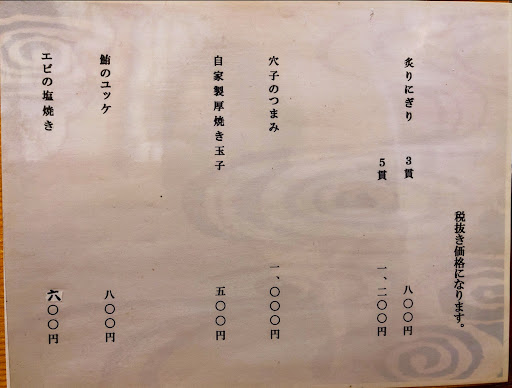 税抜き価格になります。
炙りにぎり 3貫 八〇〇円
5貫 一、二〇〇円
穴子のつまみ 一、〇〇〇円
自家製厚焼き玉子 五〇〇円
鮪のユッケ 八〇〇円
エビの塩焼き 六〇〇円